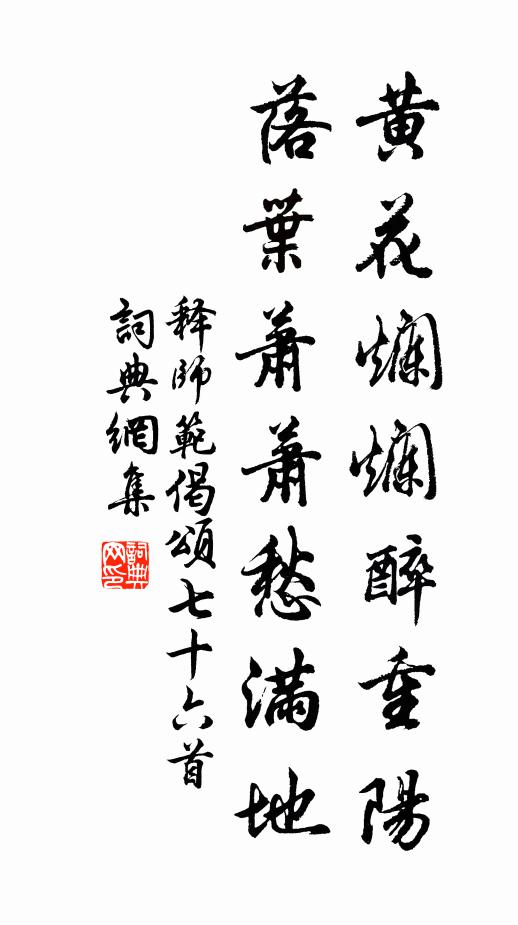 黄花爛爛醉重陽
落葉蕭蕭愁滿地
释師範偈頌七十六首
詞典網集
詞典网印